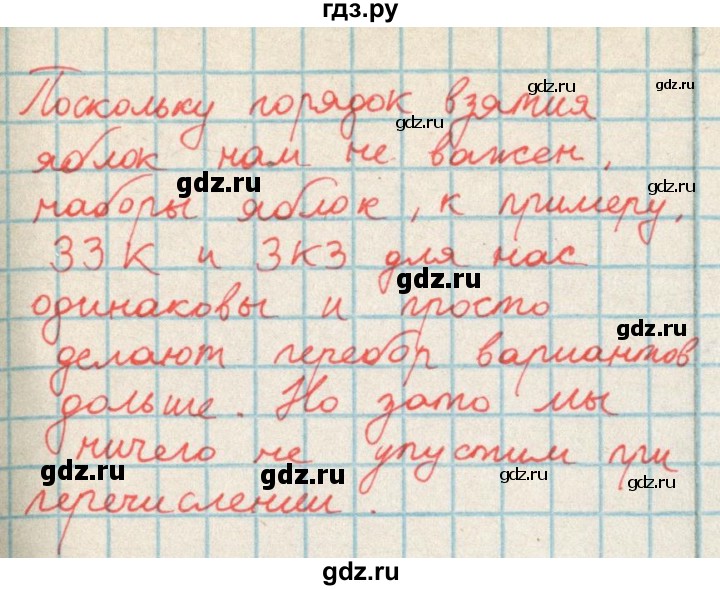 гдз.ру
Поскольку порядок взятия
gdz.ru
gdz.ru
gdz.ru
яблок нам не важен,
gdz.ru
gdz.ru
наборы яблок, к примеру,
ЗЗК и ЗКЗ для нас
gdz.ru
одинаковы и просто
gdz.ru
делают перебор вариантов
дольше. Но зато мы
ничего не упустим при
gdz.ru
gdz.ru
gdz.ru
gdz.ru
перечислении.
gdz.ru